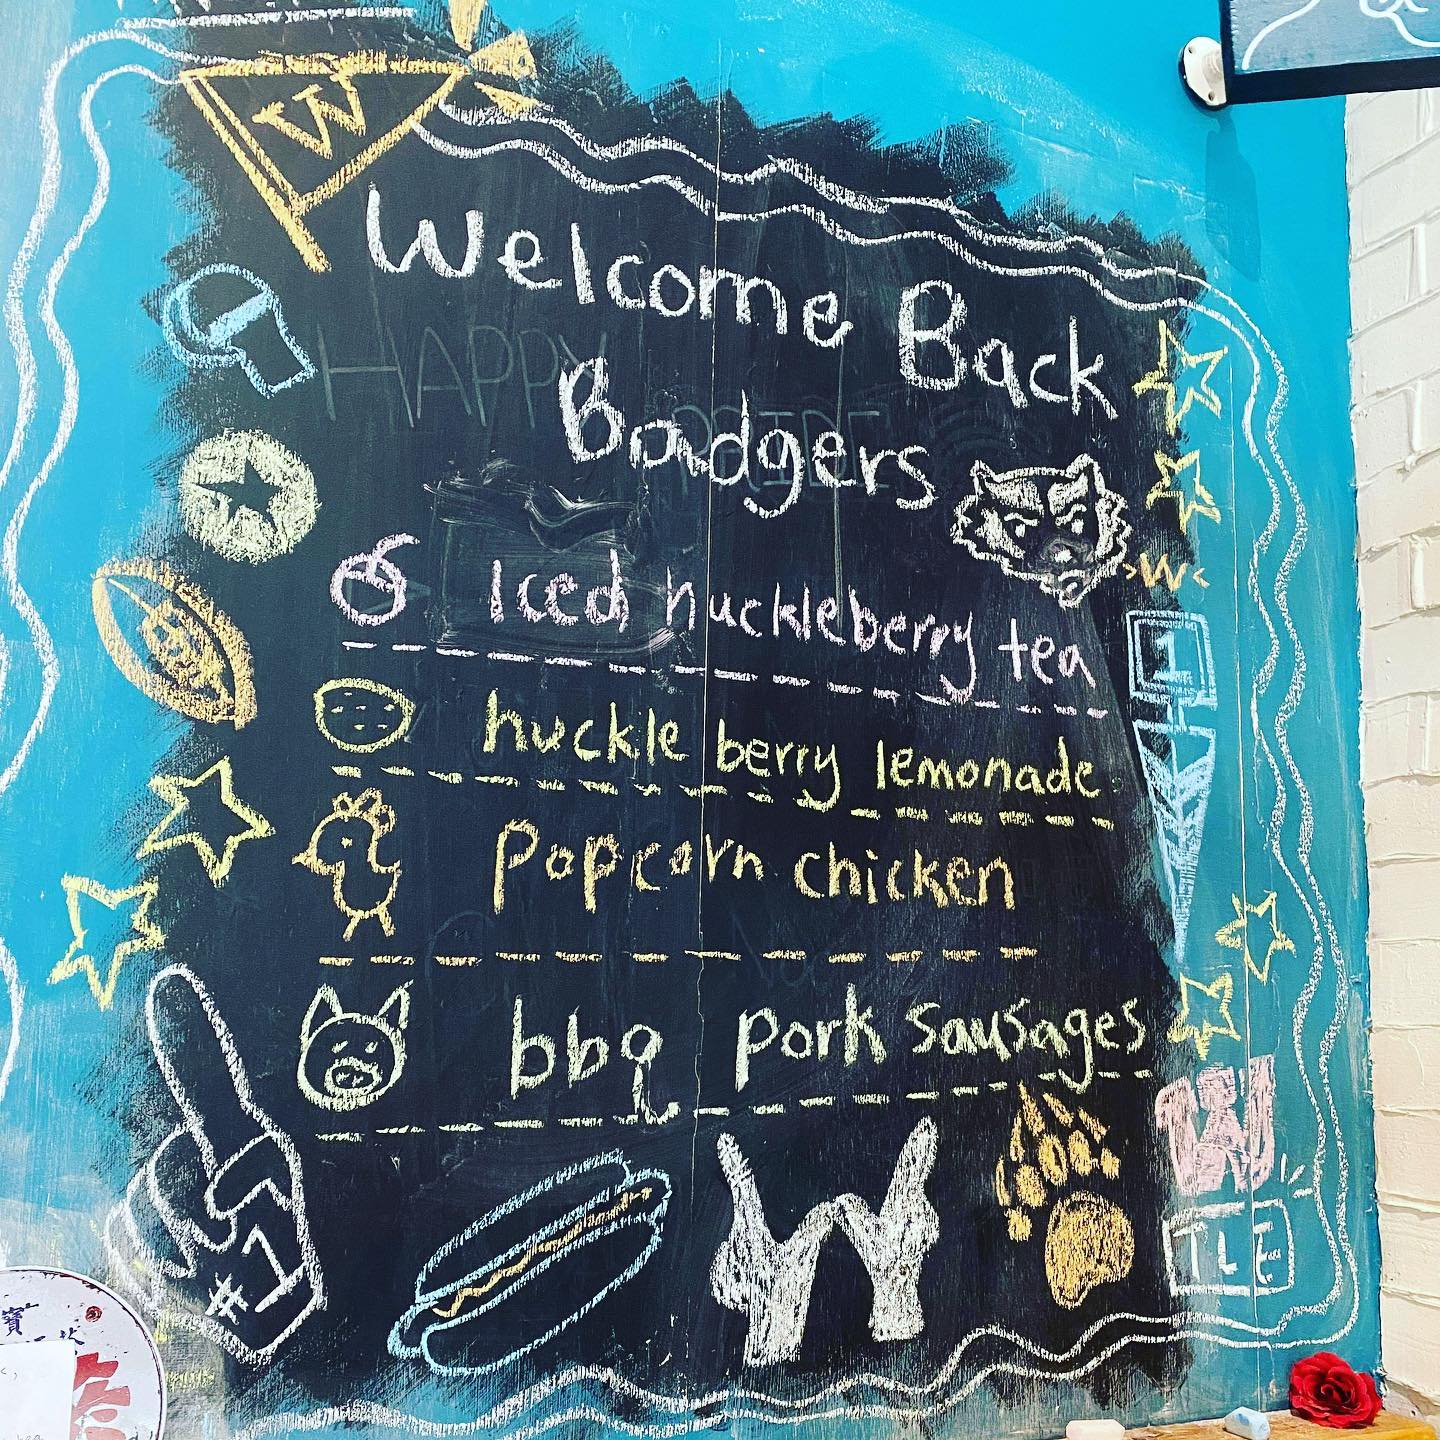 W
Welcome Back
HAPPY
Badgers
PRIDE
W
Iced huckleberry tea
1
huckle berry lemonade
Popcorn chicken
bbq pork sausages
W
#1
W
TLE
寶